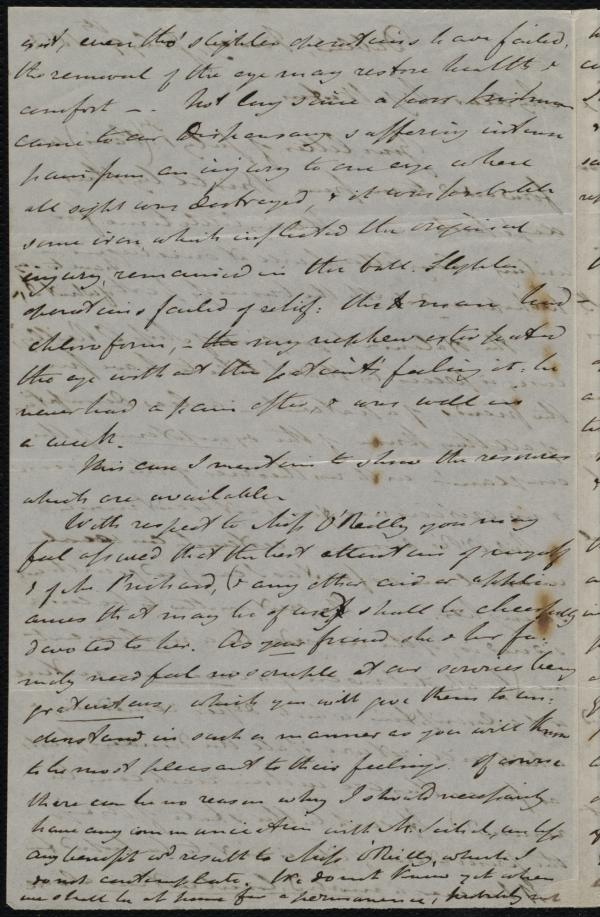 even tho' slighter operations have failed,
the removal of the eye may restore health &
comfort —. Not long since a poor Irishman
came to our Dispensary suffering intense
pain from an injury to one eye where
all sight was destroyed, & it was probable
some iron which inflicted the original
injury, remained in the ball. Slighter
operations failed of relief: the man had
chloroform, – the my nephew extirpated
the eye without the patient's feeling it: he
never had a pain after, & was well in
a week.
This case I mention to show the resources
which are available.
With respect to Miss O'Reilly you may
feel assured that the best attentions of myself
& of Mr. Prichard, (& any other aid or appli
ances that may be of use) shall be cheerfully
devoted to her. As your friend she & her fa-
mily need feel no scruple at our services being
gratuitous, which you will give them to un-
derstand in such a manner as you will think
to be most pleasant to their feelings. Of course
there can be no reason why I should necessarily
have any communication with Mr. unless
any benefit wd. result to Miss O'Reilly, which I
do not contemplate. We do not know yet when
we shall be at home for a permanence, probably not